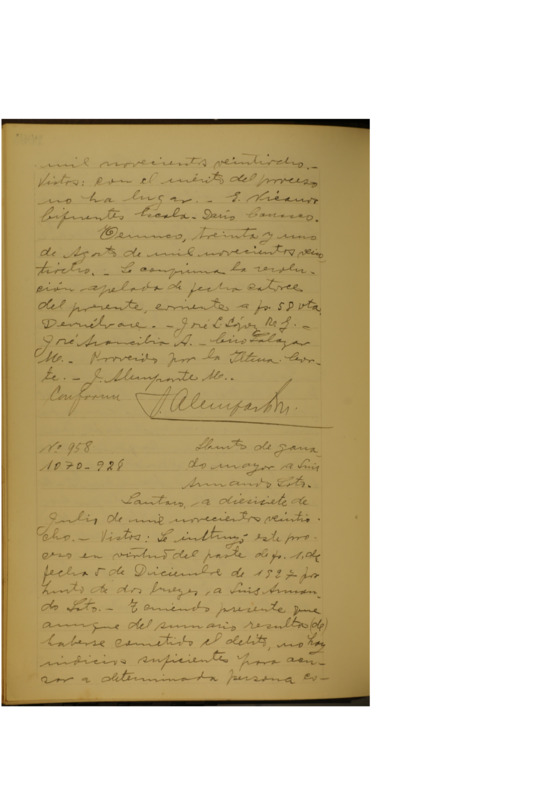 mil novecientos veintiocho.-
Vistos: con el mérito del proceso
no ha lugar. - E. Vicanor
Cifuentes Escala - Darío Canasco.
Temuco, treinta y uno
de Agosto de mil novecientos vein
tiocho. - Se confirma la resolu-
ción apelada de fecha catorce
del presente, corriente a fs. 58 vta
Devuélvase. - José L. López M. J. -
José Arancibia A. - Ciro Salazar
M. - Proveido por la Iltma Cor-
te. - J. Alemparte M..
Conforme J. Alemparte M.
No 958
1070-928
Hurto de gana-
do mayor a Luis
Armando Soto.
Lautaro, a diesisiete de
Julio de mil novecientos veintio-
cho. - Vistos: Se instruyó este pro-
ceso en virtud del parte de fs. 1, de
fecha 5 de Diciembre de 1927 por
hurto de dos bueyes, a Luis Arman-
do Soto. - Teniendo presente que
aunque del sumario resulta (de)
haberse cometido el delito, no hay
indicios suficientes para acu-
sar a determinada persona co-